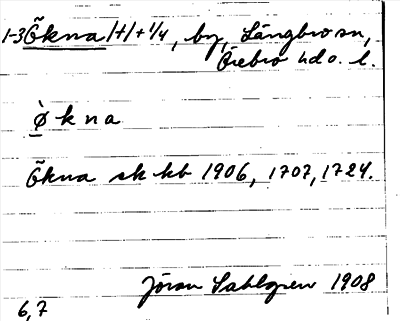 1-3 Õkna 1+1+1/4, by, Längbro sn,
Örebro hd o. l.
ø̀ k n a
Õkna sk kb 1906, 1707, 1724.
Jöran Sahlgren 1908
6,7